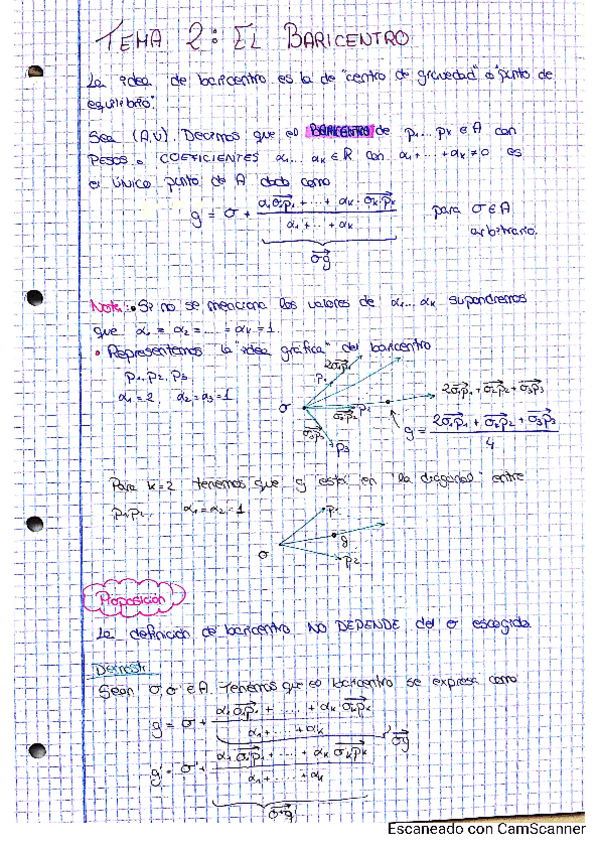 TEMA 2: EL BARICENTRO
La idea de baricentro es la de "centro de gravedad" o "punto de
equilibrio".
Sea (A,V). Decimos que el BARICENTRO de p₁...pₖ ∈ A con
PESOS o COEFICIENTES α₁...αₖ ∈ R con α₁+...+αₖ≠0 es
el único punto de A dado como
g = σ + (α₁σp₁ + ... + αₖ·σpₖ) / (α₁ + ... + αₖ) para σ ∈ A
arbitrario.
σg
Nota: • Si no se menciona los valores de α₁...αₖ supondremos
que α₁ = α₂ = ... = αₖ = 1.
• Representemos la "idea gráfica" del baricentro
p₁, p₂, p₃
α₁=2, α₂=α₃=1
2σp₁
p₁
σ
σp₂ p₂
σp₃
p₃
2σp₁ + σp₂ + σp₃
g = (2σp₁ + σp₂ + σp₃) / 4
Para k=2 tenemos que g está en "la diagonal" entre
p₁, p₂. α₁=α₂=1
p₁
g
σ
p₂
Proposición
La definición de baricentro NO DEPENDE del σ escogido
Demostr.
Sean σ, σ' ∈ A. Tenemos que el baricentro se expresa como
g = σ + (α₁σp₁ + ... + αₖσpₖ) / (α₁ + ... + αₖ)
σg
g' = σ' + (α₁σ'p₁ + ... + αₖσ'pₖ) / (α₁ + ... + αₖ)
Escaneado con CamScanner